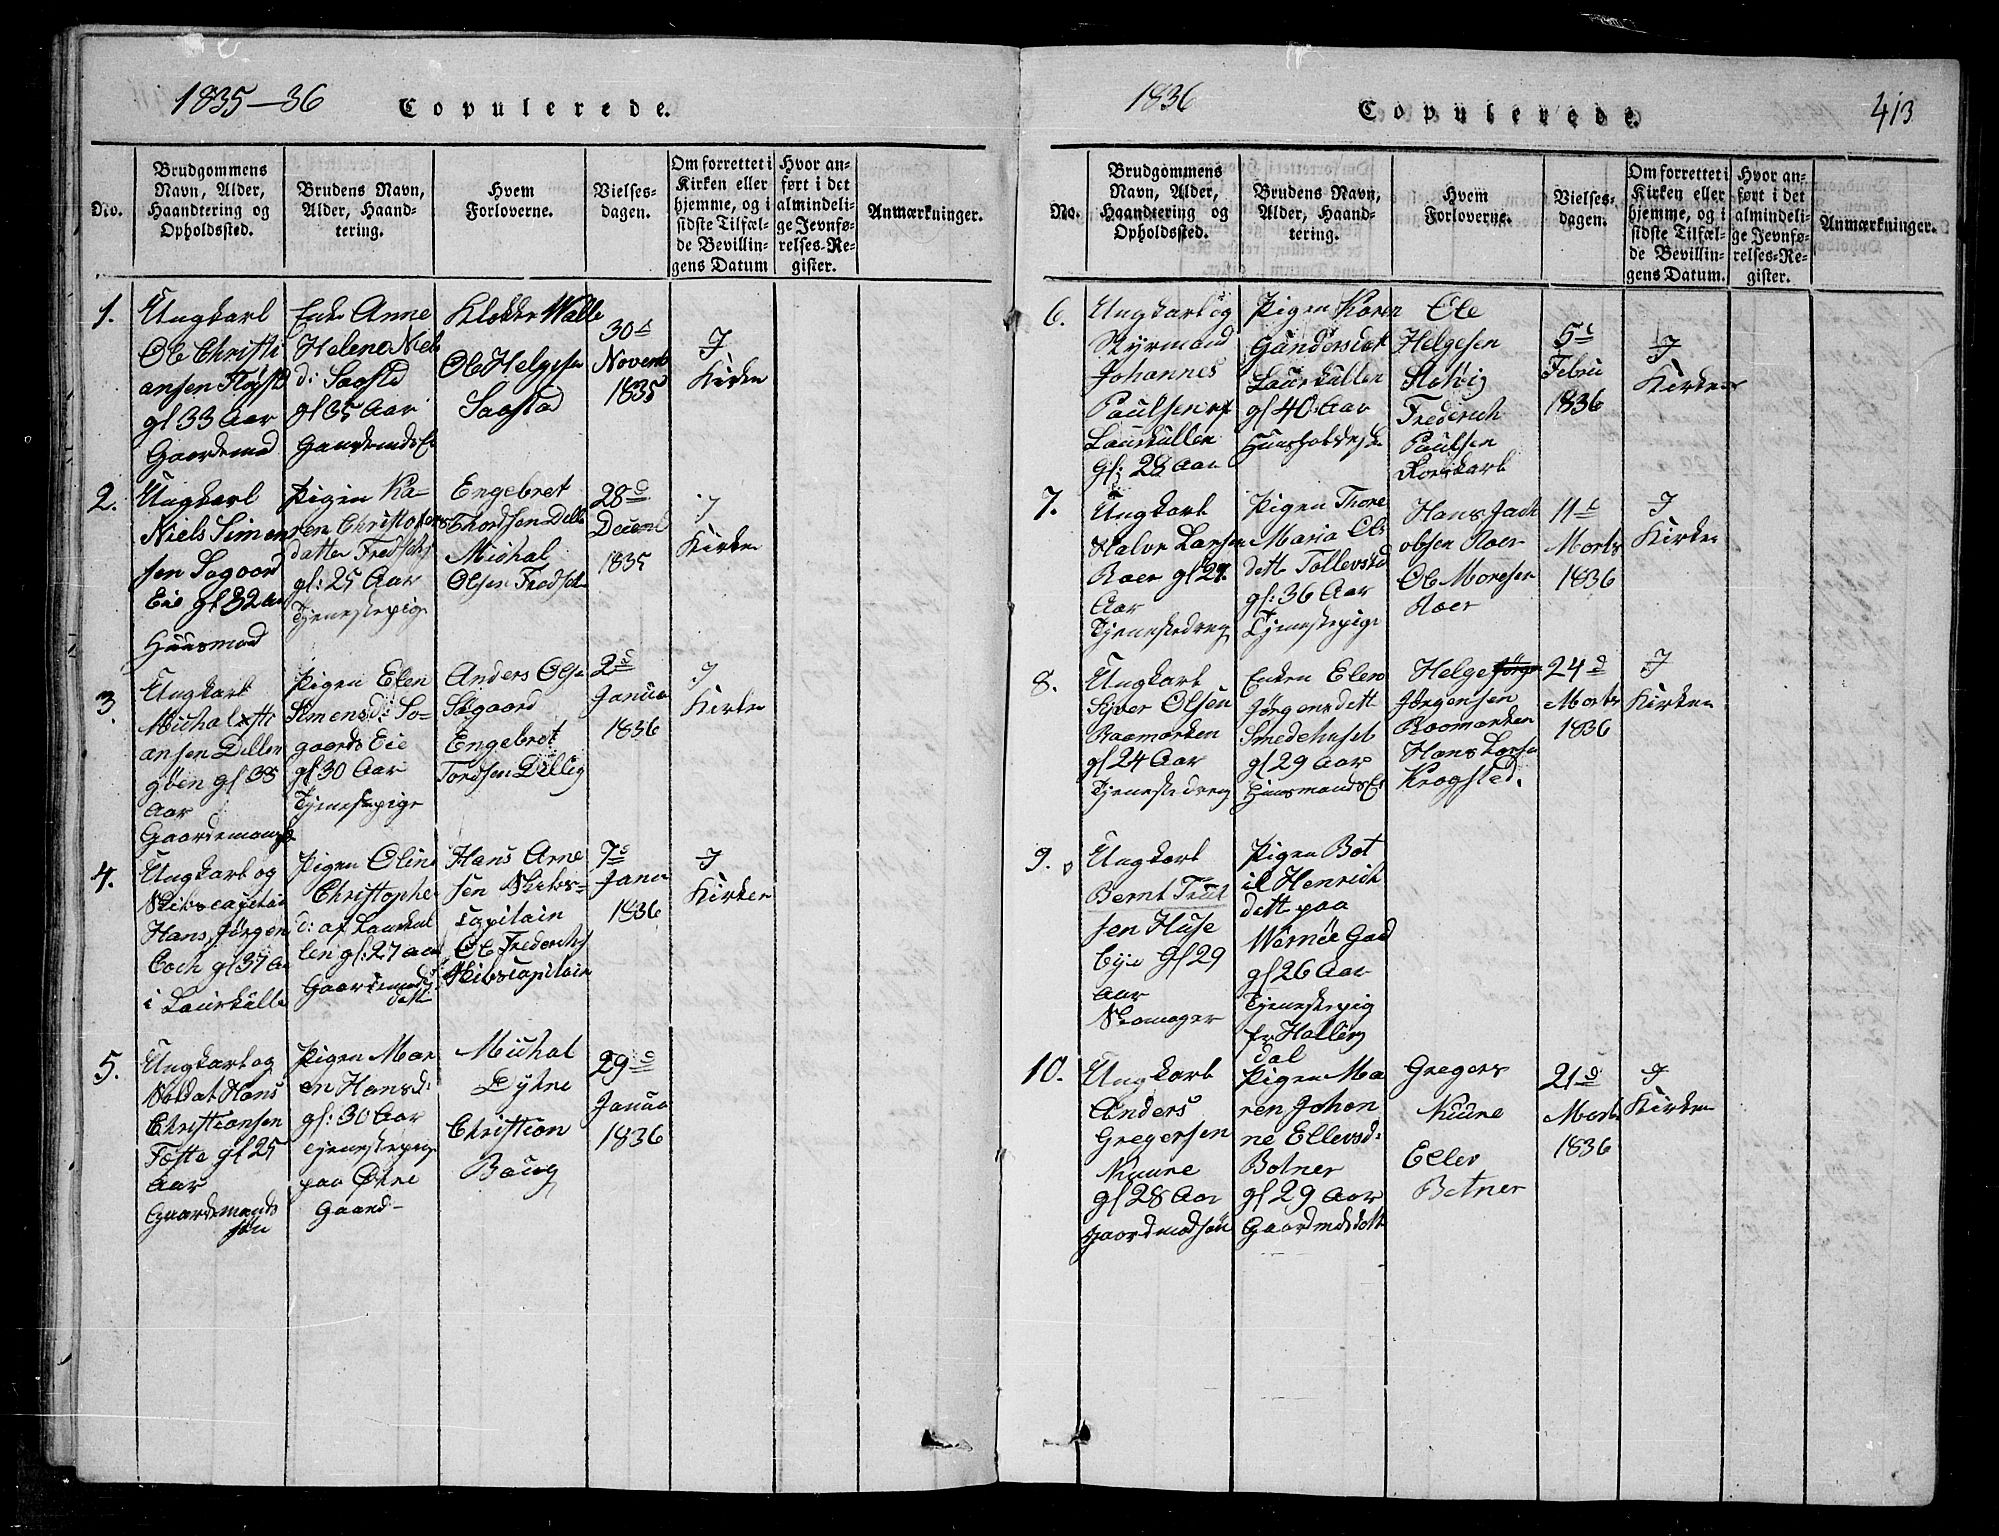 1835-36
Copulerede.
No.
Brudgommens
Navn, Alder,
Haandtering og
Opholdssted.
Brudens Navn,
Alder, Haand-
tering.
Hvem
Forloverne.
Vielses-
dagen.
Om forrettet i
Kirken eller
hjemme, og i
sidste Tilfæl-
de Bevillin-
gens Datum
Hvor an-
ført i det
almindeli-
ge Jevnfø-
relses-Re-
gister.
Anmærkninger.
1.
Ungkarl
Ole Christi
ansen
gl 33 Aar
Gaardmad
Enke Anne
Helene Niels
d: Saastd
gl 35 Aar
Klokker Walle
Ole Helgesen
Saastad
30d
Novemb
1835
I
Kirken
2.
Ungkarl
Niels Simon
sen Sogaard
Eie gl 32 aar
Huusmad
Pigen Ka-
ren Christofers
datter
gl: 25 Aar
Tjenestepige
Engebret
Thordsen Dill
Michal
Olsen
28d
Decembr
1835
I
Kirken
3.
Ungkarl
Michal
ansen Dillen
gl 35
Aar
Pigen Elen
Simensd: So-
gaards Eie
gl 30 Aar
Tjenestepige
Anders Olse
Sogaard
Engebret
Tordsen Dilling
2d
Janua
1836
I
Kirken
4.
Ungkarl og
Skibscapitain
Hans Jørgen
Coch gl 37 a
i Laurkulle
Pigen Oline
Christophe
d: af Laurkul
len gl: 27 aar
Gaardmands
datt
Hans Arne
sen Skibs-
capitain
Ole Frederichs
Skibscapitain
7d
Janua
1836
I
Kirken
5.
Ungkarl og
Soldat Hans
Christiansen
Foste gl 25
Aar
Gaardmands
søn
Pigen Mar
en Hansd:
gl: 30 Aar
Tjenestepige
paa Østre
Gaard-
Michal
Dytre
Christian
Baug
29d
Janua
1836
1836
Copulerede.
413
No.
Brudgommens
Navn, Alder,
Haandtering og
Opholdssted.
Brudens Navn,
Alder, Haand-
tering.
Hvem
Forloverne.
Vielses-
dagen.
Om forrettet i
Kirken eller
hjemme, og i
sidste Tilfæl-
de Bevillin-
gens Datum.
Hvor an-
ført i det
almindeli-
ge Jevnfø-
relses-Re-
gister.
Anmærkninger.
6.
Ungkarl og
Styrmand
Johannes
Paulsen af
Laurkullen
Gl: 28 Aar
Pigen Karen
Gundersdat
Laurkullen
gl 40 Aar
Ole
Helgesen
Frederich
Paulsen
5d
Febru
1836
I
Kirken
7.
Ungkarl
Halvor Larsen
Roer gl 27
Aar
Tjenestedreng
Pigen Thore
Maria Ols
datt
gl: 36 Aar
Tjenestepige
Hans Jach
obsen Roer
Ole
Roer
11d
Marts
1836
I
Kirken
8.
Ungkarl
Syver Olsen
Raamarken
gl 24 Aar
Tjenestedreng
Enken Elen
Jørgensdatt
Smedehuset
gl 29 Aar
Helge Jørge
Jørgensen
Raamarken
Hans Larse
Krogsted.
24d
Marts
1836
I
Kirken
9.
Ungkarl
Bernt Trul
sen Huse
bye Gl 29
Aar
Skomager
Pigen Bot
il Henrich
datt paa
Wærnöe Gad
gl 26 Aar
Tjenestepig
fr Halling
dal
10.
Ungkarl
Anders
Gregersen
Kuure
gl 28 Aar
Gaardmadsøn
Pigen Ma
ren Johan
ne Ellevsd:
Botner
gl 29 Aar
Gaardmdsdatt
Gregers
Kuure
Ellev
Botner
21d
Marts
1836
I
Kirken